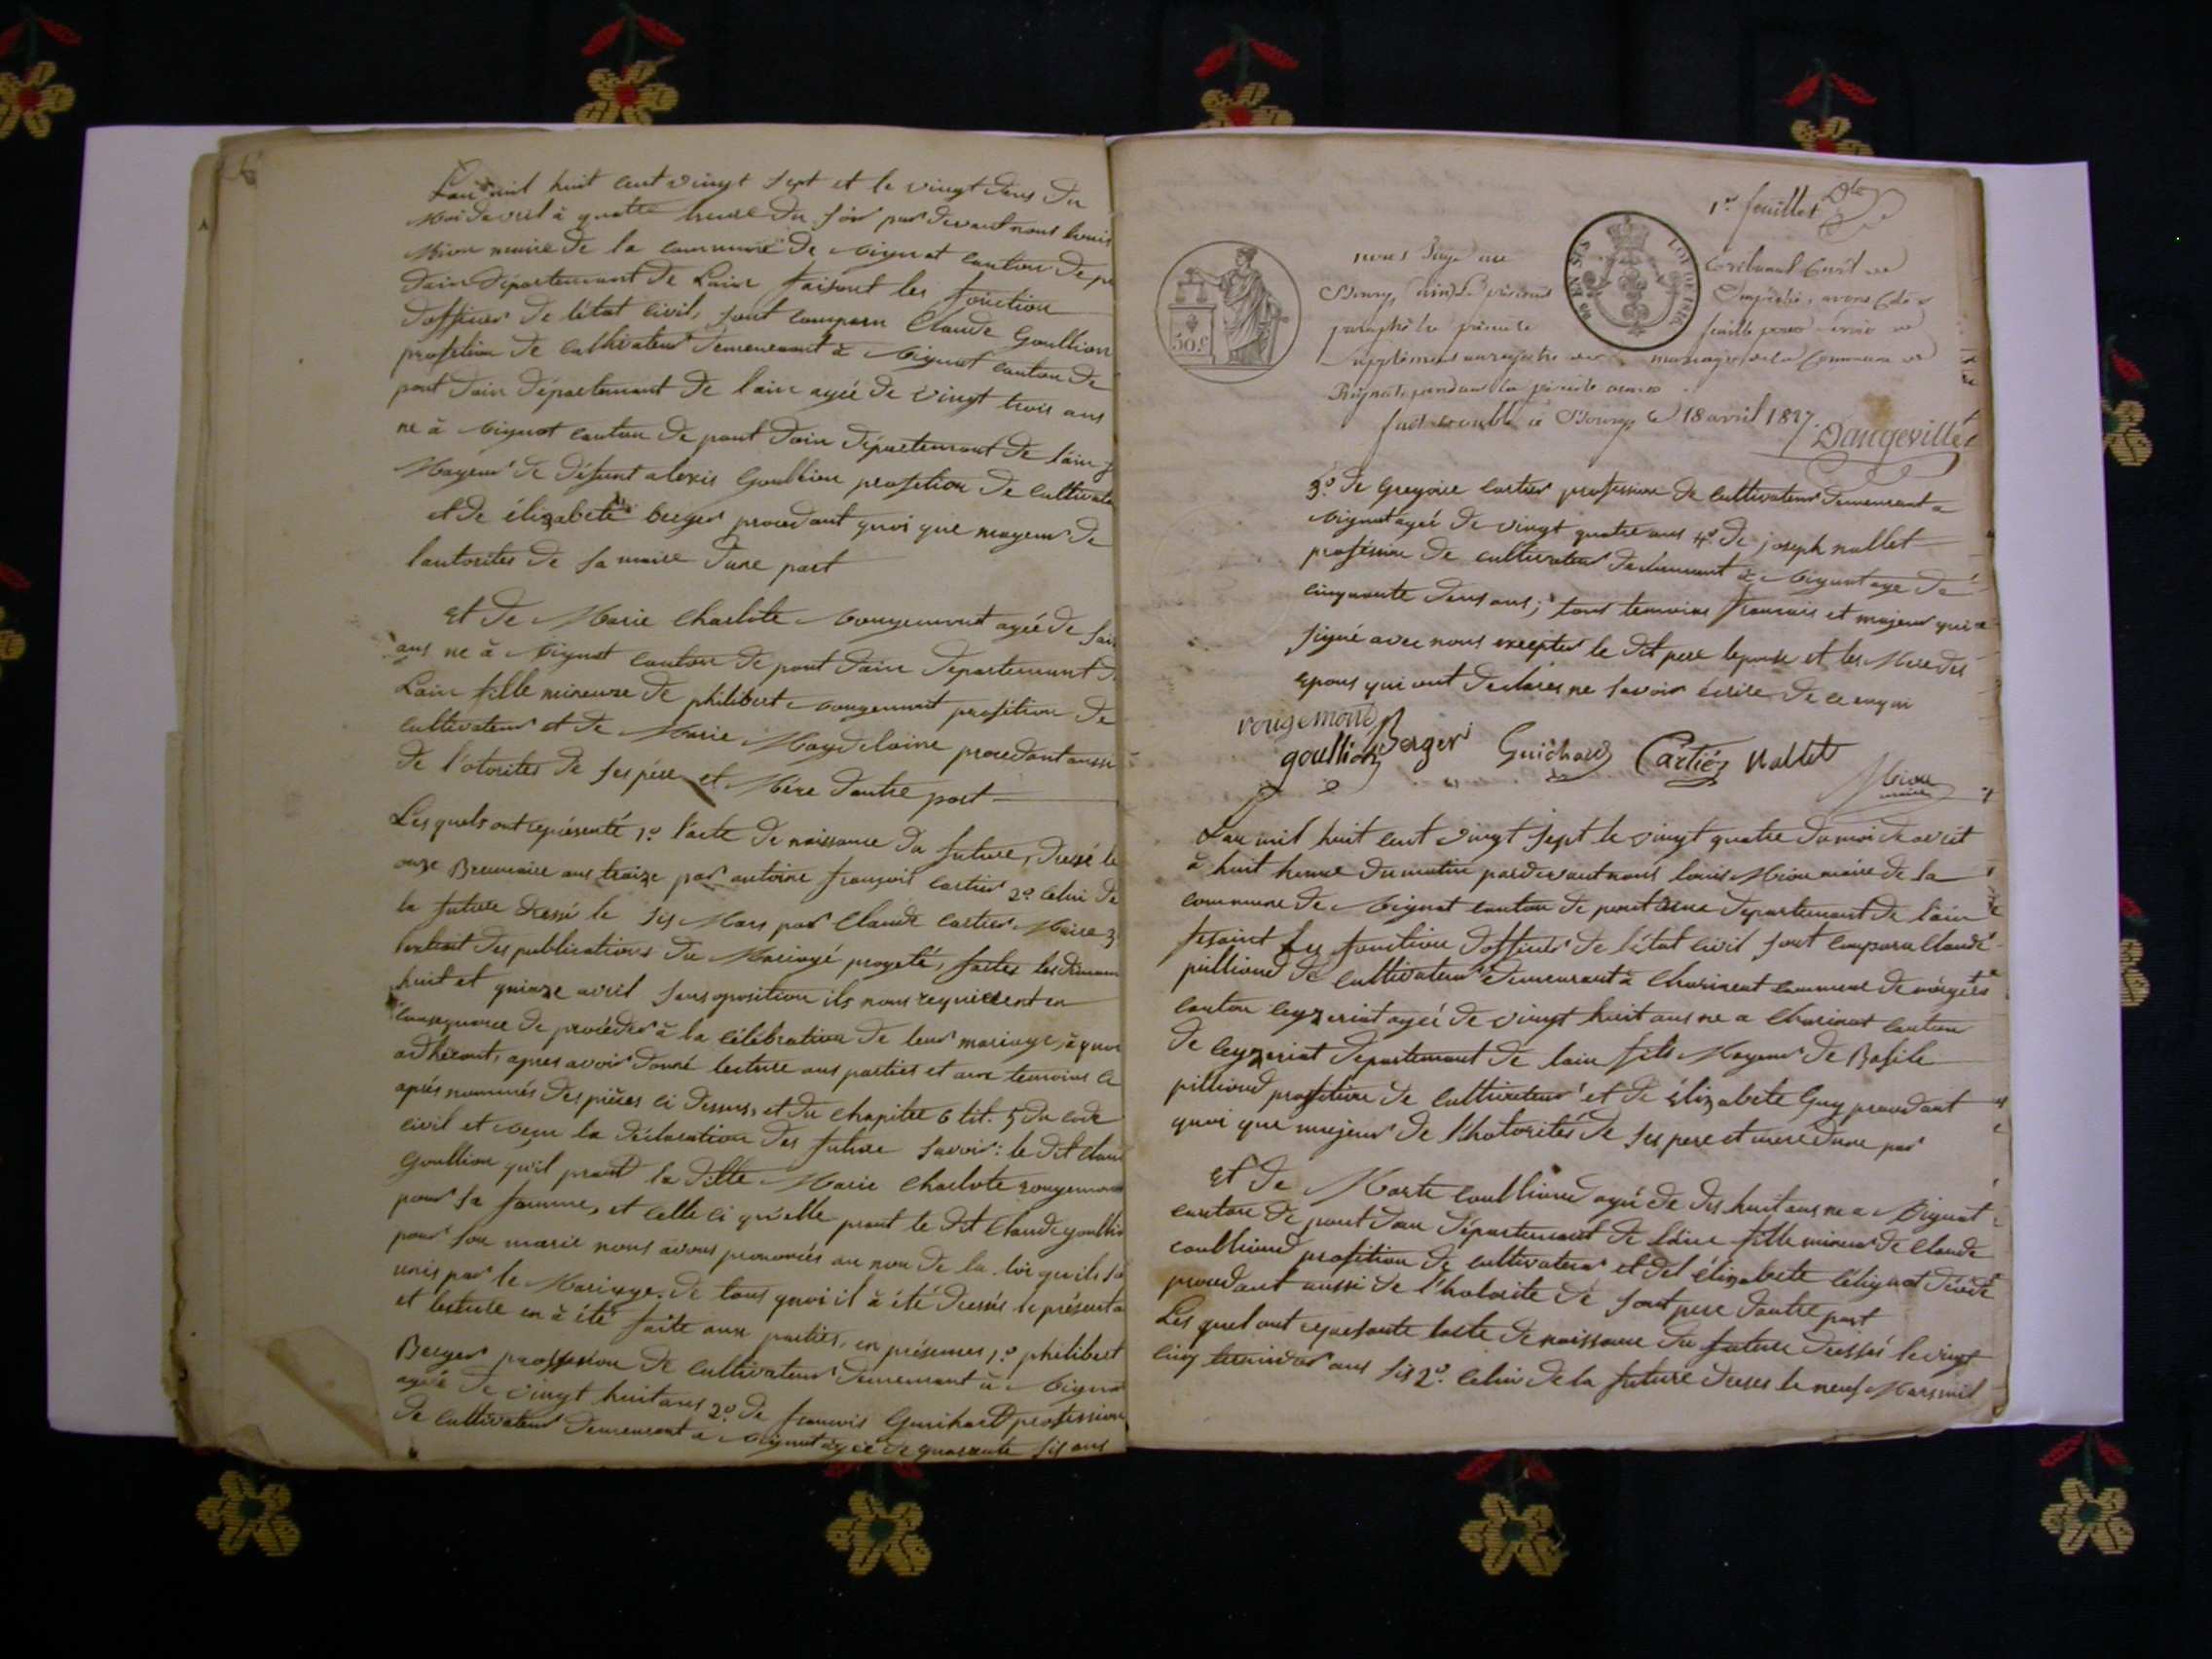 L'an mil huit cent vingt sept et le vingt deus du
Moi d'avril à quatre heure du soir par devant nous Louis
Mion maire de la commune de Rignat canton de
Dain Département de Lain faisant les fonction
Dofficier de l'état civil, sont comparu Claude Goullion
profetion de cultivateur demeurant à Rignat canton de
pont Dain Département de lain agée de vingt trois ans
ne à Rignat canton de pont Dain Département de lain
Mayeur de défunt alexis Goullion profetion de cultivate
et de élizabete berger procedant quoi que mayeur de
lautorites de sa maire dune part
et de Marie Charlote rougemont agée de
ans ne à Rignat canton de pont Dain Département
Lain fille mineure de philibert rougemont profetion de
cultivateur et de Marie Magdelaine procedant aussi
de l'otorites de ses père et Mère d'autre part
Les quels ont représenté 1º l'acte de naissance du future, dressé le
onze Brumaire ans traize par antoine françois cartier 2º celui de
la future dressé le sis Mars par Claude cartier Maire 3
lextrait des publications du Mariagé progeté, faites les diman
huit et quinze avril sans oposition ils nous requierent en
conséquence de procéder à la célébration de leur mariage, à quoi
adhérant, apres avoir donné lecture aus parties et aux temoins ci
aprés nommés des pièces ci dessus, et du chapitre 6 tit. 5 du code
civil et reçu la déclaration des future savoir: le dit Claud
Goullion qu'il prant la ditte Marie Charlote rougemon
pour sa famme, et celle ci qu'elle prant le dit Claude goullio
pour son marie nous avons prononcés au nom de la loi qu'ils
unis par le Mariage. de tous quoi il à été dressés le présent a
et lecture en à été faite aux parties, en présences 1º philibert
Berger profession de cultivateur demeurant à Rignat
agée de vingt huit ans 2º de francois Guichard profession
de cultivateur demeurant a Rignat agée de quarante sis ans
1er feuillet
nous Juge au
tribunal Civil de
Bourg,
avons Coté &
paraphé le présent
feuille pour servir de
supplément au registre des mariages de la Commune de
Rignat pendant la présente année
fait double à Bourg, le 18 avril 1827
Dangeville
50 c
LOI DE 1816
EN SUS
3º de Gregoire Cartier profession de cultivateur demeurant a
Rignat agée de vingt quatre ans 4º de joseph nallet
profession de cultivateur demeurant à Rignat age de
cinquante deus ans; tous temoins francais et majeur qui
signé avec nous exepter le dit pere lepouse et les Mere des
epous qui ont declarés ne savoir écrire de ce enquis
rougemond
goullion Berger Guichard Cartiér Nallet
Mion
maire
L'an mil huit cent vingt sept le vingt quatre du moi de avril
à huit heure du matin par devant nous louis Mion maire de la
commune de Rignat canton de pont Département de l'ain
fesaint les fonction dofficier de l'état civil sont comparu Claude
pilliond de cultivateur demeurant à Charinat commune de
canton ceyzeriat agéé de vingt huit ans ne a Charinat canton
de ceyzeriat Département de lain fils Mayeur de Basile
pilliond profetion de cultivateur et de élizabete Guy procedant
quoi que majeur de l'hotorités de ses pere et mere dune par
Et de Marte coulliond agée de dis huit ans ne a Rignat
canton de pont Dain Département de laine fille mineur de Claude
coulliond profetion de cultivateur et del élizabete décédé
procedant aussi de l'hotorite de sont pere dautre part
Les quel ont representé lacte de naissance du future dressés le vingt
cinq ans sis 2º. Celui de la future dreses le neuf Mars mil